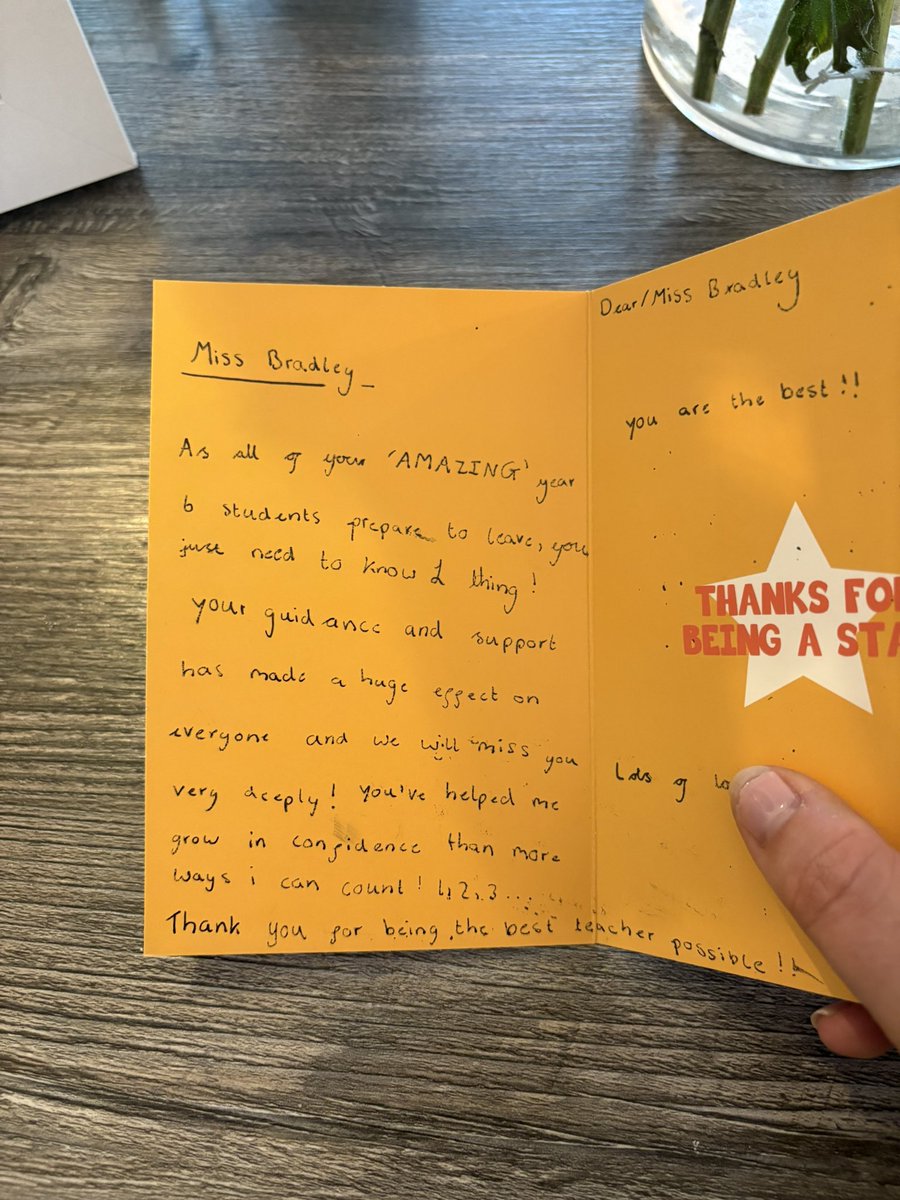 Miss Bradley -
As all of your 'AMAZING' year
6 students prepare to leave, you
just need to know 1 thing!
your guidance and support
has made a huge effect on
everyone and we will miss you
very deeply! you've helped me
grow in confidence than more
ways i can count! 1, 2, 3...
Thank you for being the best teacher possible!!
Dear/Miss Bradley
you are the best!!
THANKS FOR
BEING A STA
Lots of